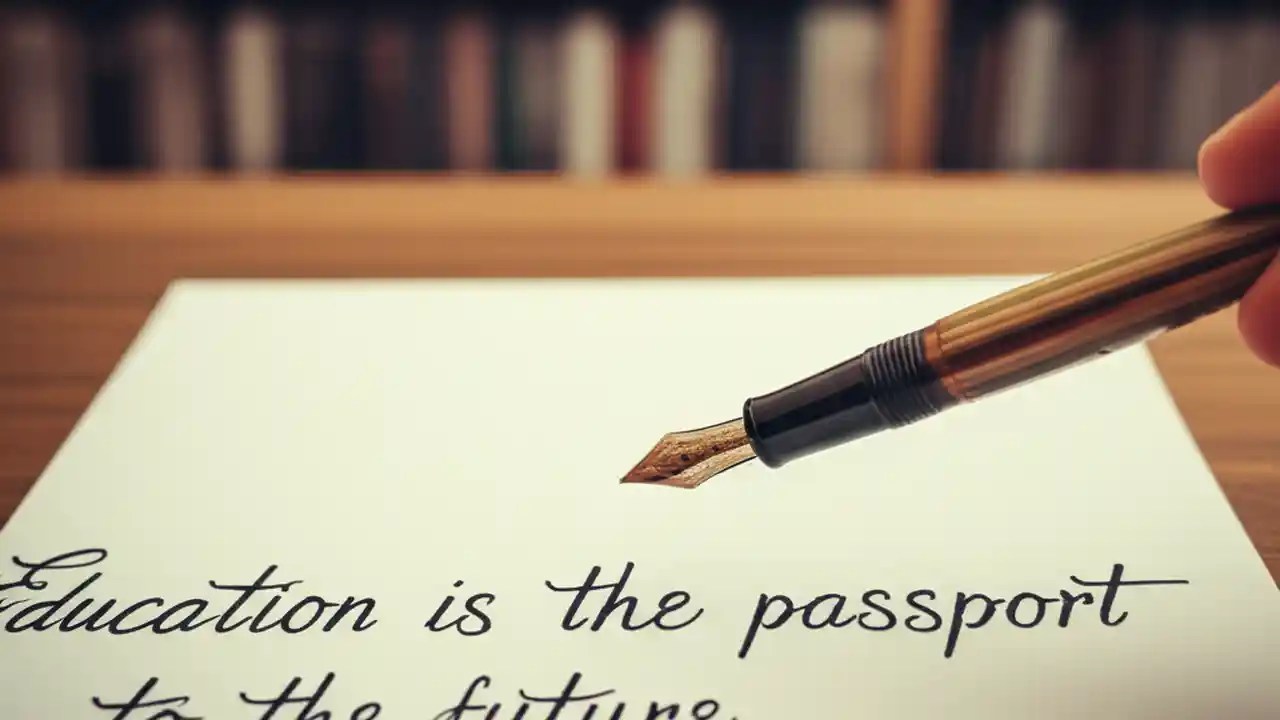 Education is the passport
to the future.